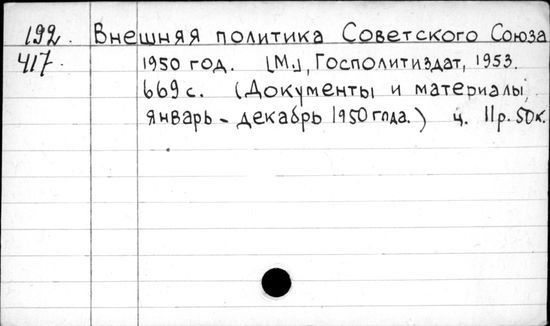 192. Внешняя политика Советского Союза
417. 1950 год. [М.], Госполитиздат, 1953.
669 с. (Документы и материалы,
январь - декабрь 1950 года.) ц. 11р. 50к.